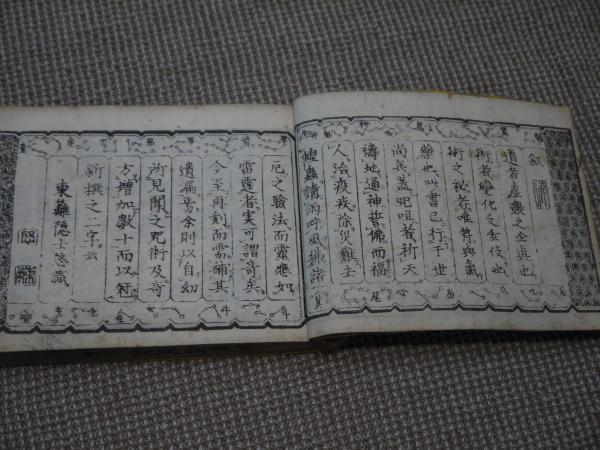 叙
道者虚之全真也
術者變化之玄伎也
術之秘者唯符與氣
藥也此書已行于世
尚矣蓋呪咀者祈天
禱地通神誓佛而福
人治疫疾除災難
蝗蟲請雨呼風攘諸
房
心
尾
厄之驗法而靈應如
雷霆者実可謂奇矣
今至再刻而需補其
遺漏焉余則以自幼
所見聞之咒術及奇
方増加数十而以符
新撰之二字云
東隠士識
牛
女